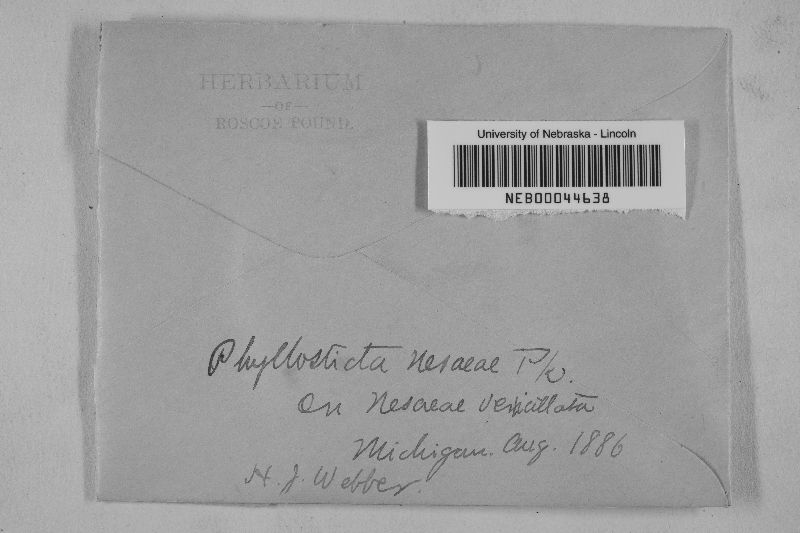 HERBARIUM
—OF—
ROSCOE POUND.
University of Nebraska - Lincoln
NEB00044638
Phyllosticta Nesaeae Pk.
On Nesaeae verticillata
Michigan. Aug. 1886
H. J. Webber.